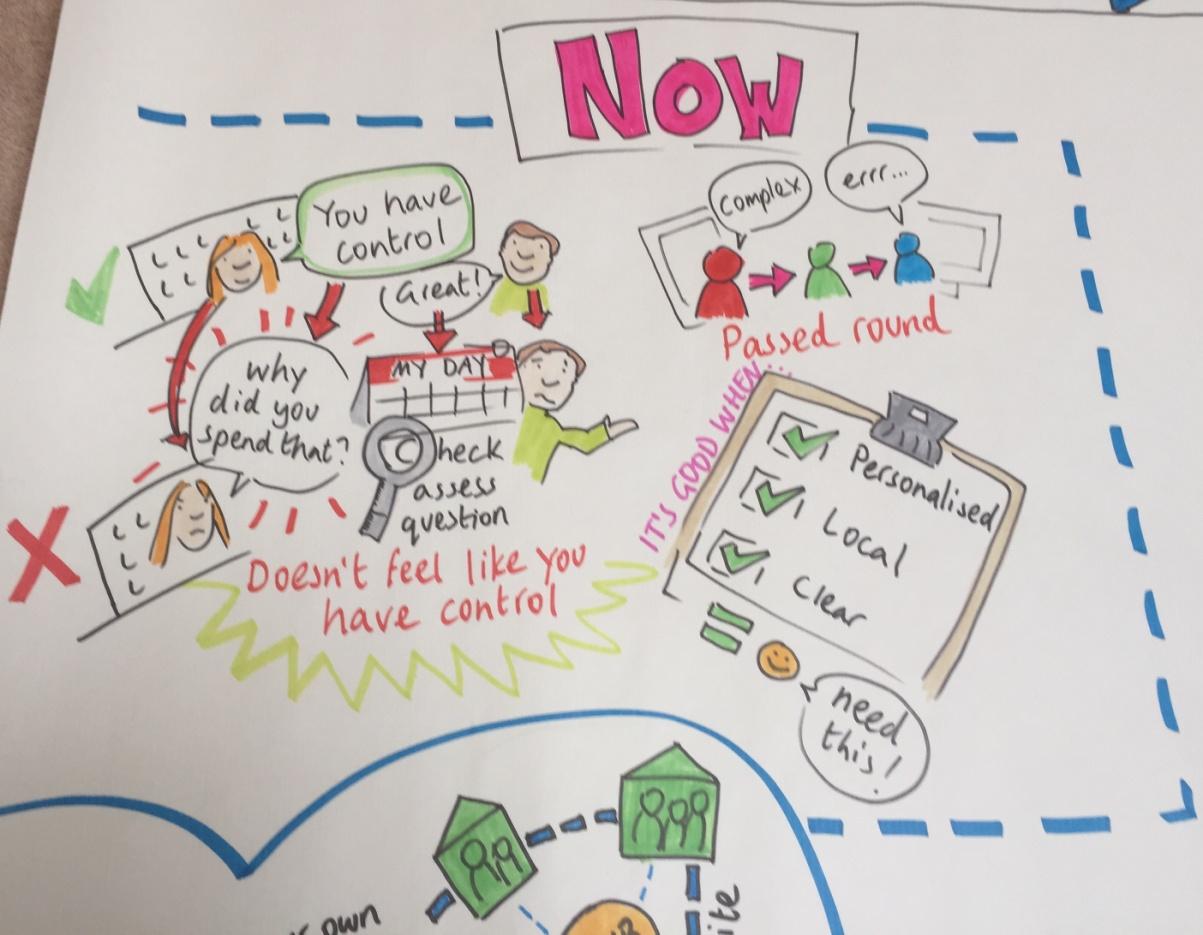 NOW
You have
control
Great!
Why
did you
spend that?
MY DAY
Check
assess
question
Doesn't feel like you
have control
complex
errr...
Passed round
IT'S GOOD WHEN...
Personalised
Local
Clear
need
this!
own